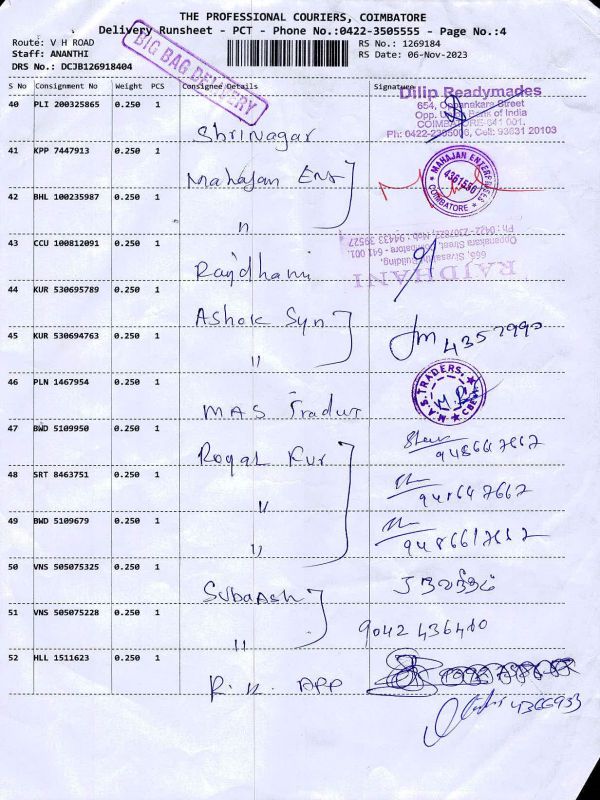 THE PROFESSIONAL COURIERS, COIMBATORE
Delivery Runsheet - PCT - Phone No.:0422-3505555 - Page No.:4
Route: V H ROAD
RS No.: 1269184
Staff: ANANTHI
RS Date: 06-Nov-2023
DRS No.: DCJB126918404
BIG BAG DELIVERY
S No Consignment No Weight PCS Consignee Details Signature
Dilip Readymades
654, Oppanakara Street
Opp. Bank of India
COIMBATORE-641 001.
Ph: 0422-2385006, Cell: 93631 20103
40 PLI 200325865 0.250 1
Shrinagar
41 KPP 7447913 0.250 1
Mahajan Ent
MAHAJAN ENTERPRISES
4361550
COIMBATORE
42 BHL 100235987 0.250 1
"
43 CCU 100812091 0.250 1
Rajdhani
RAJDHANI
Oppanakara Street, Coimbatore - 641 001.
44 KUR 530695789 0.250 1
Ashok Syn
45 KUR 530694763 0.250 1
"
4357990
46 PLN 1467954 0.250 1
MAS Tradur
M.A.S. TRADERS
47 BWD 5109950 0.250 1
Royal Kur
48 SRT 8463751 0.250 1
"
49 BWD 5109679 0.250 1
"
50 VNS 505075325 0.250 1
Subaash
51 VNS 505075228 0.250 1
"
9042 436480
52 HLL 1511623 0.250 1
R.K. APP
4366933